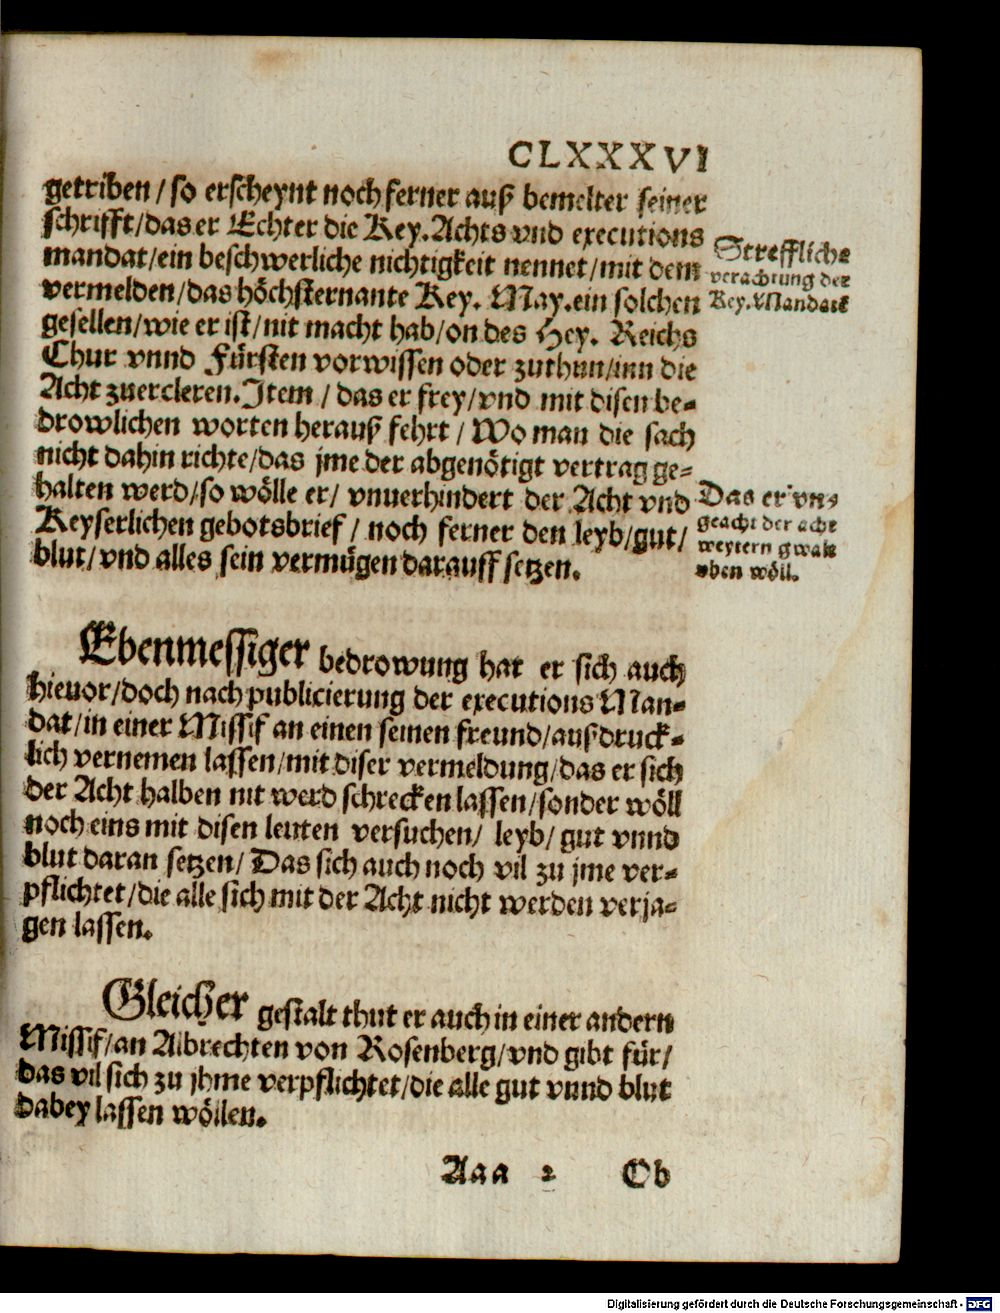 CLXXXVI
getriben / so erscheynt noch ferner auß bemelter seiner
schrifft/das er Echter die Key. Achts vnd executions
mandat/ein beschwerliche nichtigkeit nennet/mit dem
vermelden/das höchsternante Key. May.ein solchen
gesellen/wie er ist/nit macht hab/on des Hey. Reichs
Chur vnnd Fürsten vorwissen oder zuthun/inn die
Acht zuercleren. Item / das er frey/vnd mit disen be-
drowlichen worten herauß fehrt / Wo man die sach
nicht dahin richte/das jme der abgenötigt vertrag ge-
halten werd/so wölle er/ vnuerhindert der Acht vnd
Keyserlichen gebotsbrief / noch ferner den leyb/gut/
blut/vnd alles sein vermügen darauff setzen.
Streffliche
verachtung der
Key.Mandatt
Das er vn-
geacht der acht
weytern gwalt
vben wöll.
Ebenmessiger bedrowung hat er sich auch
hieuor/doch nach publicierung der executions Man-
dat/in einer Missif an einen seinen freund/außdruck-
lich vernemen lassen/mit diser vermeldung/das er sich
der Acht halben nit werd schrecken lassen/sonder wöll
noch eins mit disen leuten versuchen/ leyb/ gut vnnd
blut daran setzen/ Das sich auch noch vil zu jme ver-
pflichtet/die alle sich mit der Acht nicht werden verja-
gen lassen.
Gleicher gestalt thut er auch in einer andern
Missif/an Albrechten von Rosenberg/vnd gibt für/
das vil sich zu jhme verpflichtet/die alle gut vnnd blut
dabey lassen wöllen.
Aaa 2 Ob
Digitalisierung gefördert durch die Deutsche Forschungsgemeinschaft - DFG